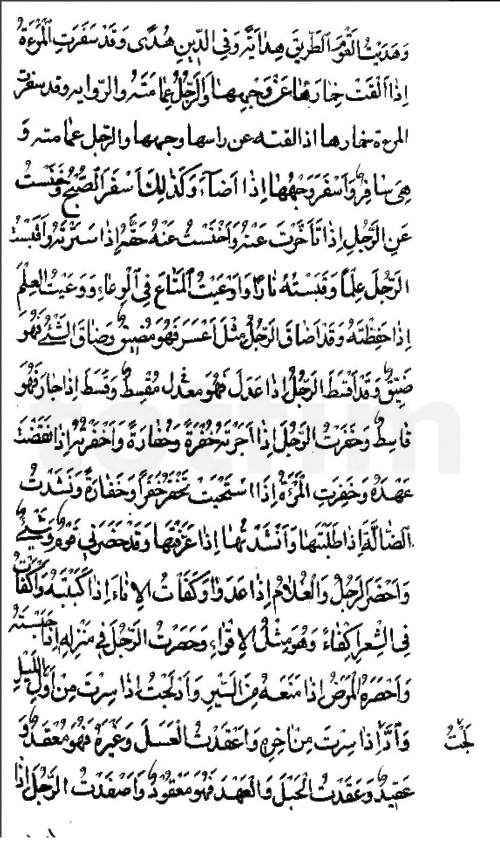 وَهَدَيْتُ القَوْمَ الطَّرِيقَ هِدَايَةً وَفِي الدِّينِ هُدًى وَقَدْ سَفَرَتِ المَرْءَةُ
إِذَا أَلْقَتْ خِمَارَهَا عَنْ وَجْهِهَا وَالرَّجُلُ عِمَامَتَهُ والرّوايه وقد سفرت
المرءة خمارها اذا القته عن راسها وجهها والرجل عمامته و
هِيَ سَافِرٌ وَأَسْفَرَ وَجْهُهَا إِذَا أَضَاءَ وَكَذَلِكَ أَسْفَرَ الصُّبْحُ وَخَنَسْتُ
عَنِ الرَّجُلِ إِذَا تَأَخَّرْتَ عَنْهُ وَأَخْنَسْتُ عَنْهُ حَقَّهُ إِذَا سَتَرْتَهُ وَأَقْبَسْتُ
الرَّجُلَ عِلْمًا وَقَبَسْتُهُ نَارًا وَأَوْعَيْتُ المَتَاعَ فِي الْوِعَاءِ وَوَعَيْتُ العِلْمَ
إِذَا حَفِظْتَهُ وَقَدْ أَضَاقَ الرَّجُلُ مِثْلَ أَعْسَرَ فَهُوَ مُضِيقٌ وَضَاقَ الشَّيْءُ فَهُوَ
ضَيِّقٌ وَقَدْ أَقْسَطَ الرَّجُلُ إِذَا عَدَلَ فَهُوَ مُقْسِطٌ وَقَسَطَ إِذَا جَارَ فَهُوَ
قَاسِطٌ وَخَفَرْتُ الرَّجُلَ إِذَا أَجَرْتَهُ خُفْرَةً وَخُفَارَةً وَأَخْفَرْتُهُ إِذَا نَقَضْتَ
عَهْدَهُ وَخَفِرَتِ المَرْءَةُ إِذَا اسْتَحْيَتْ تَخْفَرُ خَفَرًا وَخَفَارَةً وَنَشَدْتُ
الضَّالَّةَ إِذَا طَلَبْتَهَا وَأَنْشَدْتُهَا إِذَا عَرَّفْتَهَا وَقَدْ حَضَرَنِي قَوْمٌ وَشَيْءٌ
وَأَحْضَرَ الرَّجُلُ وَالْغُلَامُ إِذَا عَدَوَا وَكَفَأْتُ الإِنَاءَ إِذَا كَبَبْتَهُ وَأَكْفَأْتُ
فِي الشِّعْرِ إِكْفَاءً وَهُوَ مِثْلُ الإِقْوَاءِ وَحَصَرْتُ الرَّجُلَ فِي مَنْزِلِهِ إِذَا حَبَسْتَهُ
وَأَحْصَرَهُ المَرَضُ إِذَا مَنَعَهُ مِنَ السَّيْرِ وَأَدْلَجْتُ إِذَا سِرْتَ مِنْ أَوَّلِ اللَّيْلِ
وَادَّ إِذَا سِرْتَ مِنْ آخِرِهِ وَأَعْقَدْتُ العَسَلَ وَغَيْرَهُ فَهُوَ مُعْقَدٌ وَ
لَجْتُ
عَقِيدٌ وَعَقَدْتُ الحَبْلَ وَالعَهْدَ فَهُوَ مَعْقُودٌ وَأَصْفَدْتُ الرَّجُلَ إِذَا